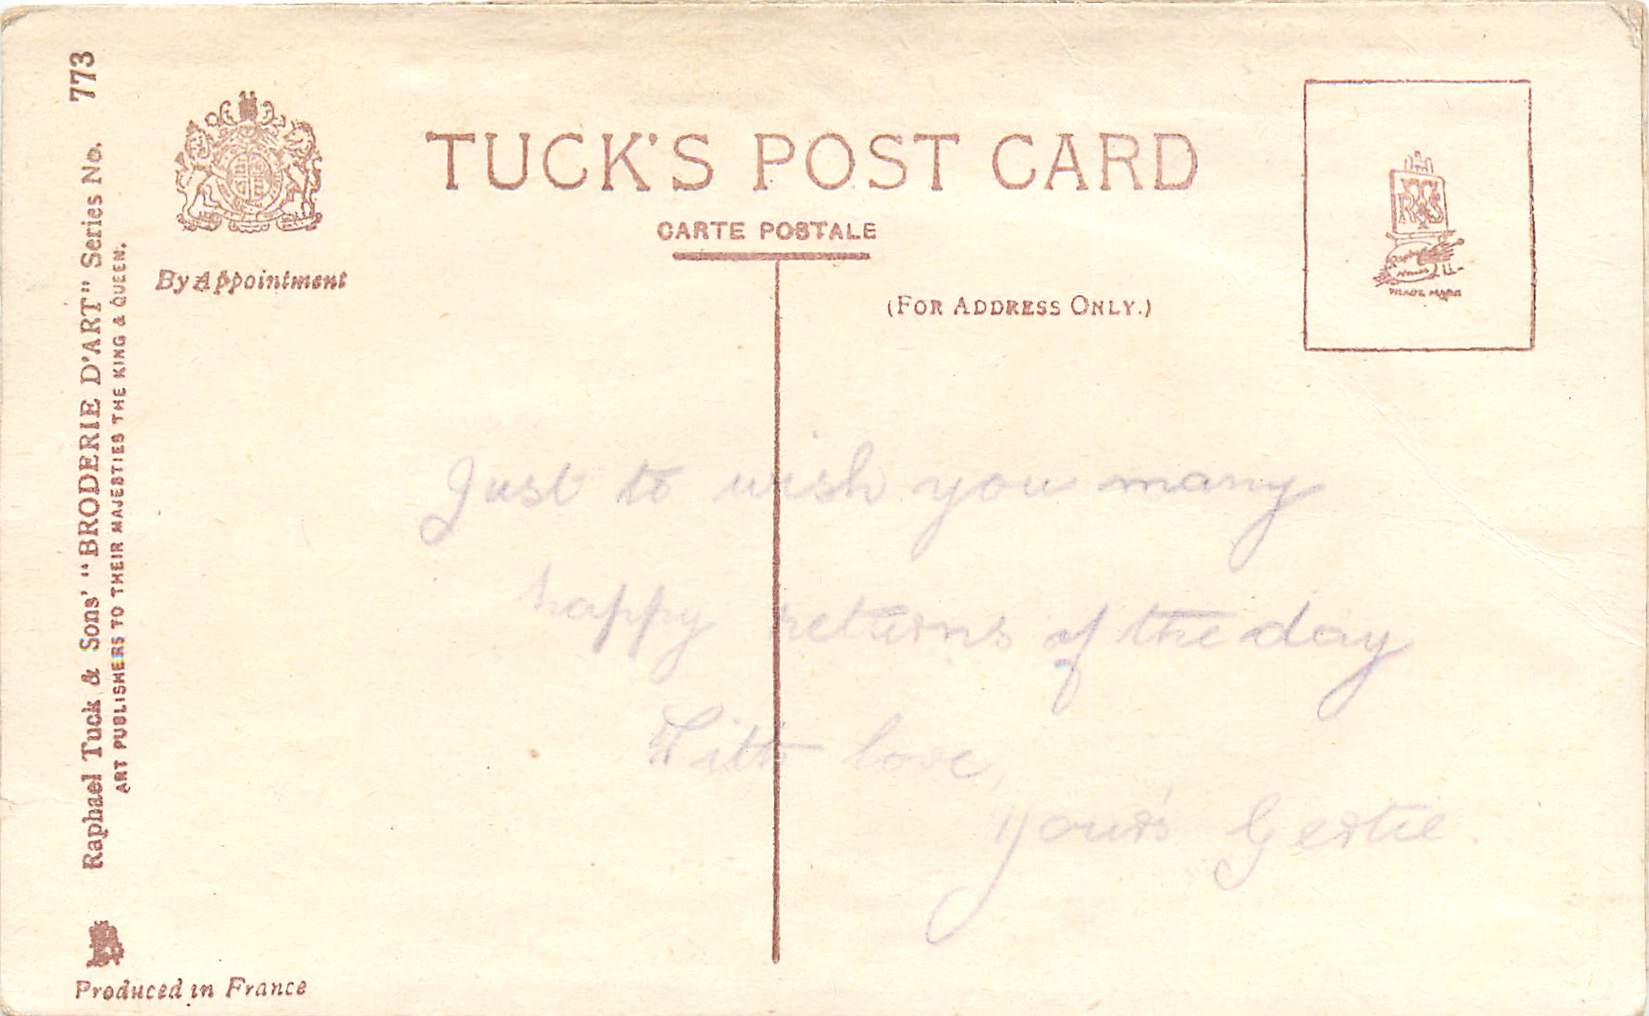 TUCK'S POST CARD
CARTE POSTALE
(FOR ADDRESS ONLY.)
By Appointment
Raphael Tuck & Sons' "BRODERIE D'ART" Series No. 773
ART PUBLISHERS TO THEIR MAJESTIES THE KING & QUEEN.
Produced in France
TRADE MARK
Just to wish you many
happy returns of the day
With love,
Your's Gertie.